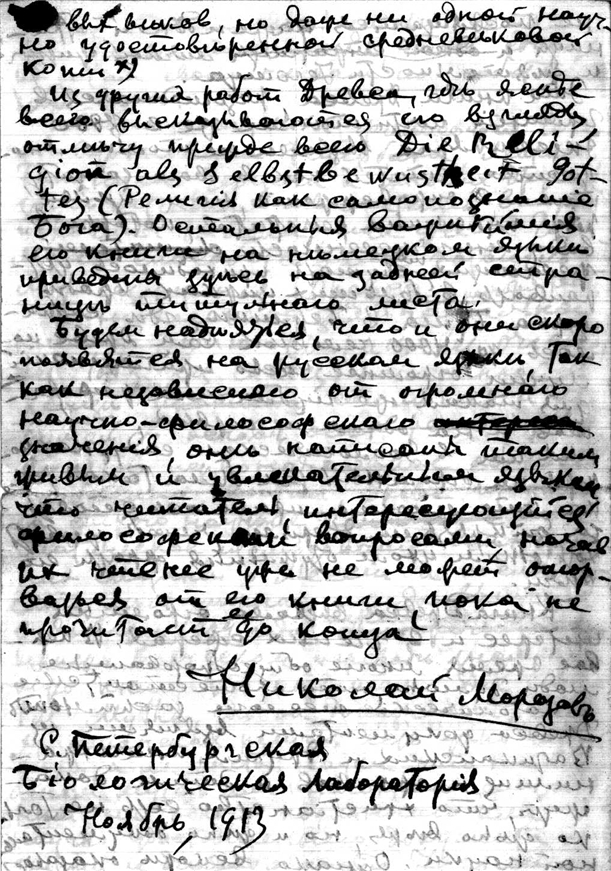 вѣковъ, но даже ни одной науч-
но удостовѣренной средневѣковой
копіи х)
Изъ другихъ работъ Древса, гдѣ яснѣе
всего высказываются его взгляды
отмѣчу прежде всего Die Reli-
gion als Selbstbewustheit Got-
tes (Религія какъ самопознаніе
Бога). Остальныя
его книги на нѣмецкомъ языкѣ
приведены здѣсь на задней стра-
ницѣ титульнаго листа.
Будемъ надѣяться, что и онѣ скоро
появятся на русском языкѣ, так
как независимо от огромнаго
научно-философскаго интереса
значенія, онѣ написаны таким
живым и увлекательным языком
что читатель, интересующійся
философскими вопросами, начав
их чтеніе уже не может отор-
ваться от его книги, пока не
прочитает ее до конца!
Николай Морозовъ
С. Петербургская
Біологическая Лабораторія
Ноябрь, 1913